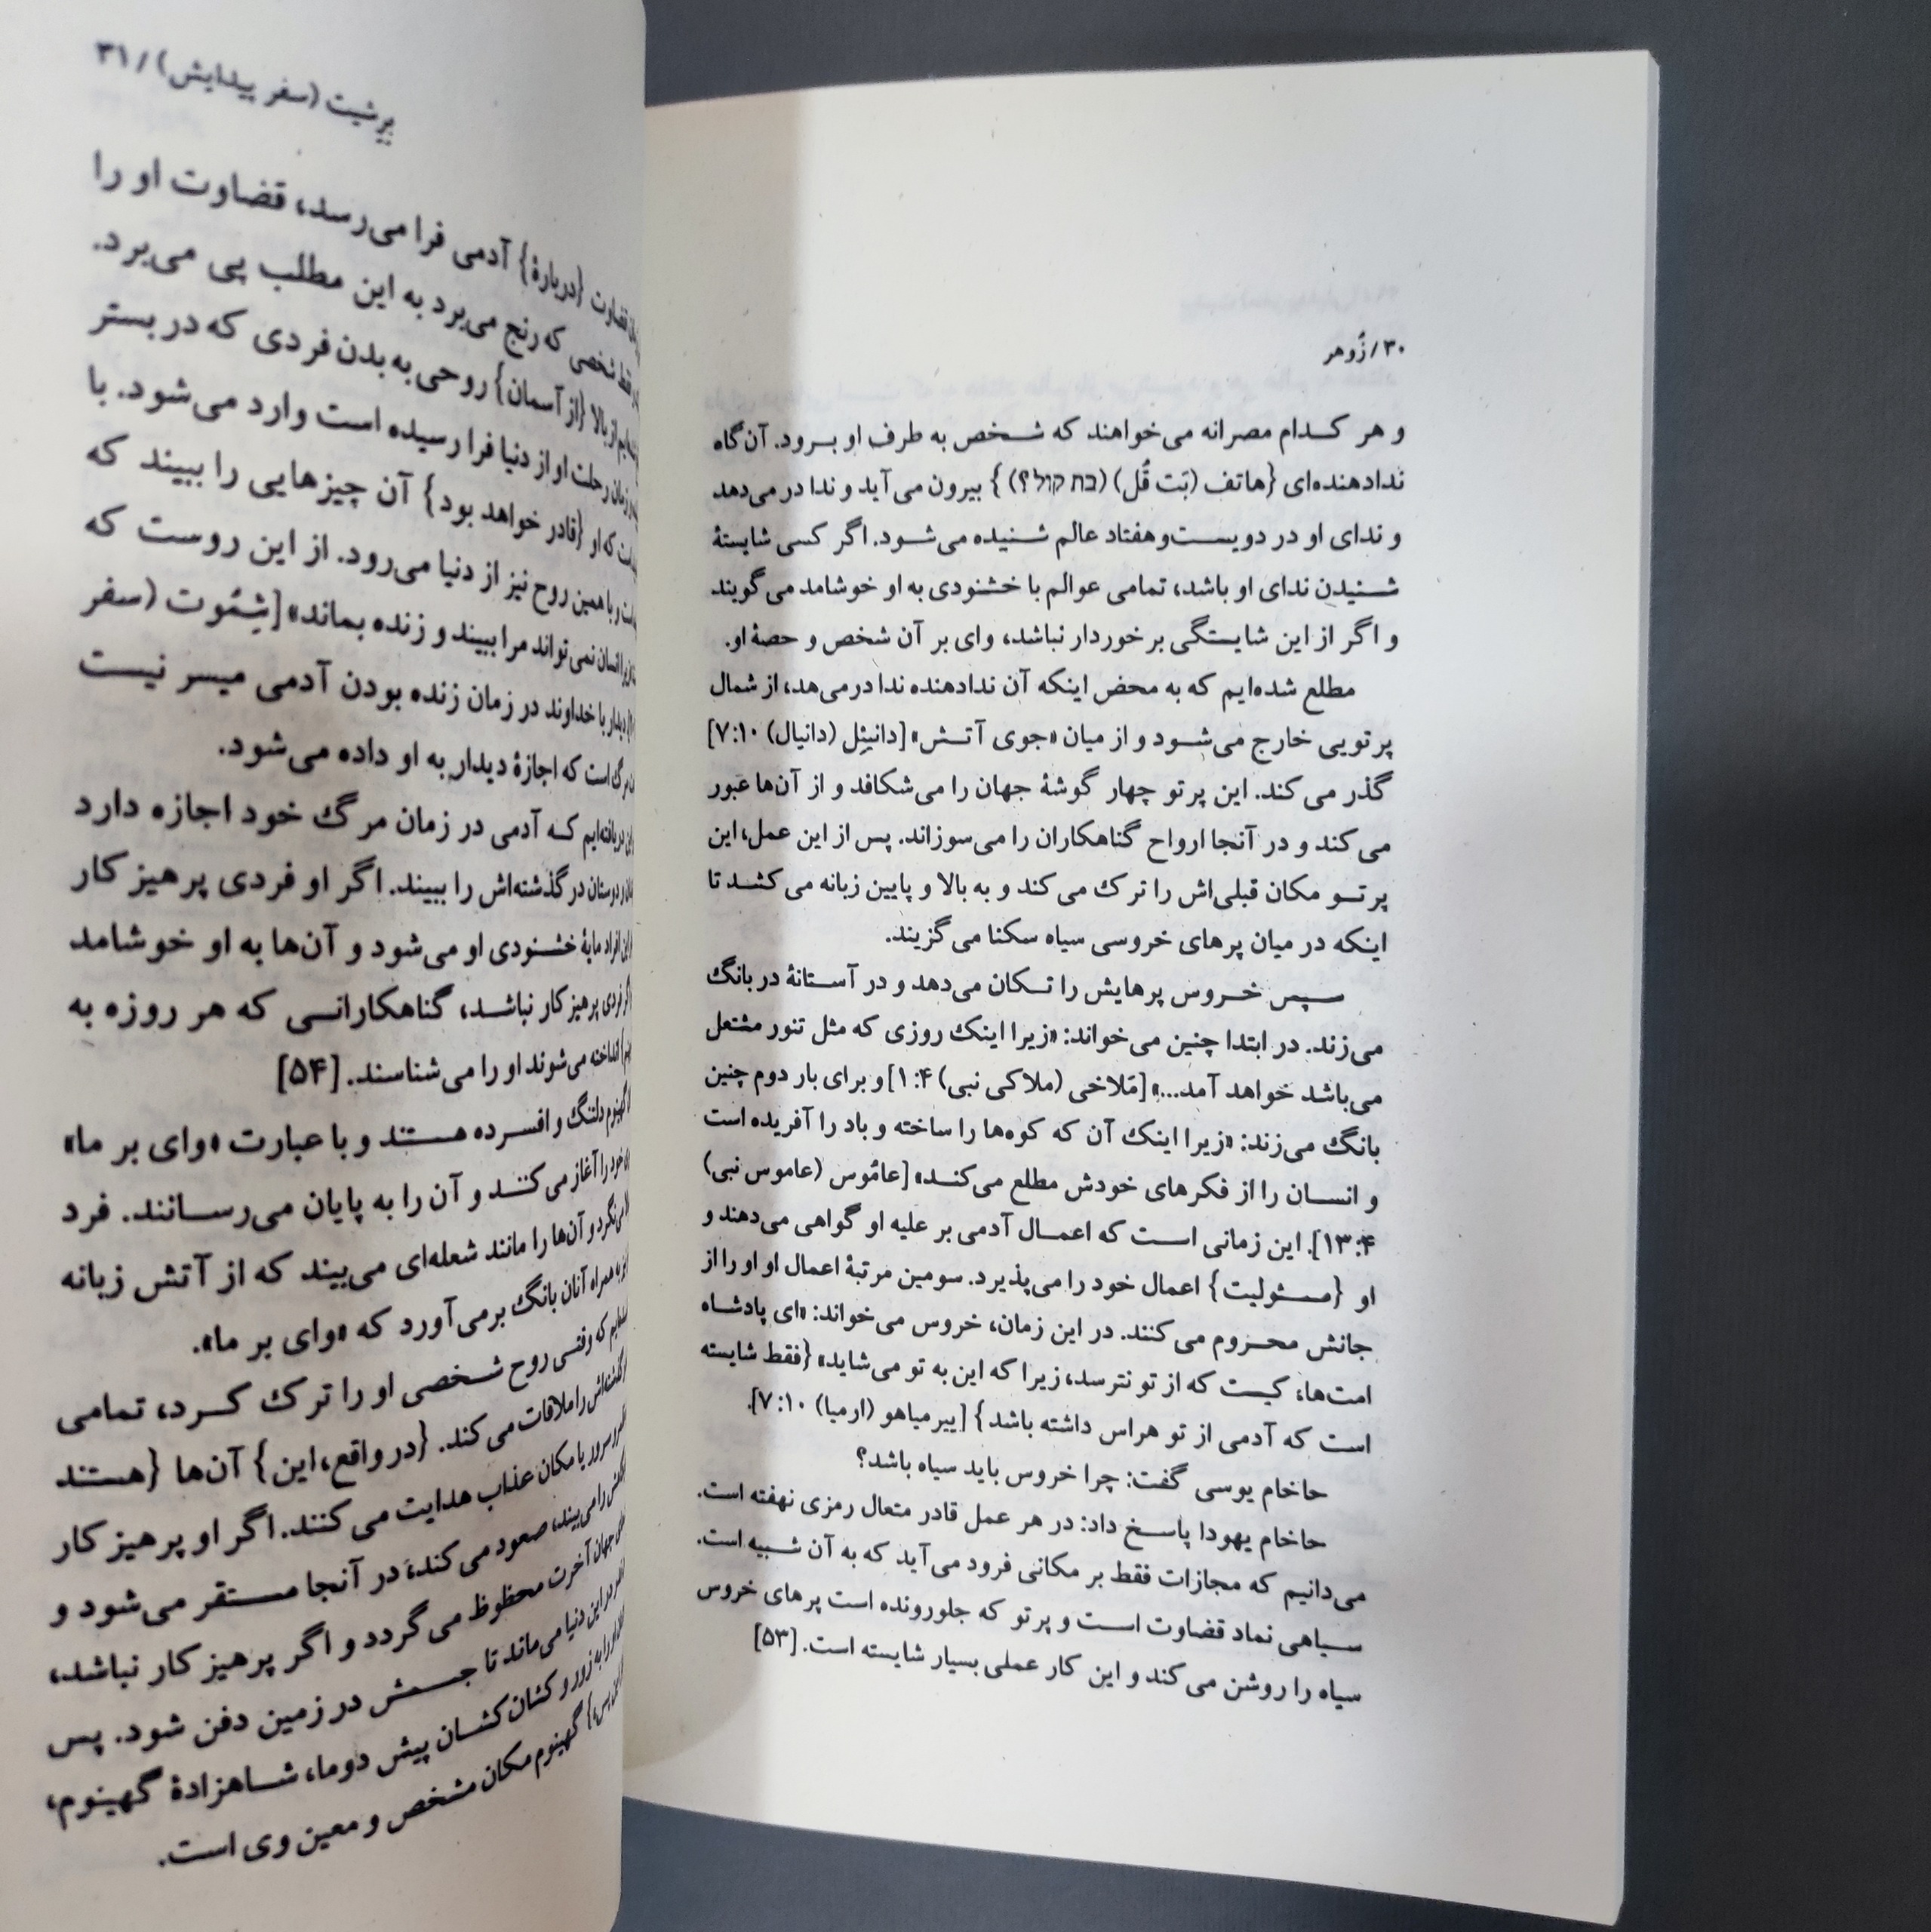 ۳۰/ زُوهر
و هر کدام مصرانه می‌خواهند که شخص به طرف او برود. آن‌گاه
ندادهنده‌ای {هاتف (بَت قُل) (בת קול؟) } بیرون می‌آید و ندا در می‌دهد
و ندای او در دویست‌وهفتاد عالم شنیده می‌شود. اگر کسی شایستهٔ
شنیدن ندای او باشد، تمامی عوالم با خشنودی به او خوشامد می‌گویند
و اگر از این شایستگی برخوردار نباشد، وای بر آن شخص و حصهٔ او.
مطلع شده‌ایم که به محض اینکه آن ندادهنده ندا درمی‌هد، از شمال
پرتویی خارج می‌شود و از میان «جوی آتش» [دانیِئِل (دانیال) ۷:۱۰]
گذر می‌کند. این پرتو چهار گوشهٔ جهان را می‌شکافد و از آن‌ها عبور
می‌کند و در آنجا ارواح گناهکاران را می‌سوزاند. پس از این عمل، این
پرتو مکان قبلی‌اش را ترک می‌کند و به بالا و پایین زبانه می‌کشد تا
اینکه در میان پرهای خروسی سیاه سکنا می‌گزیند.
سپس خروس پرهایش را تکان می‌دهد و در آستانهٔ در بانگ
می‌زند. در ابتدا چنین می‌خواند: «زیرا اینک روزی که مثل تنور مشتعل
می‌باشد خواهد آمد...» [مَلاخی (ملاکی نبی) ۱:۴] و برای بار دوم چنین
بانگ می‌زند: «زیرا اینک آن که کوه‌ها را ساخته و باد را آفریده است
و انسان را از فکرهای خودش مطلع می‌کند» [عامُوس (عاموس نبی)
۱۳:۴]. این زمانی است که اعمال آدمی بر علیه او گواهی می‌دهند و
او {مسئولیت} اعمال خود را می‌پذیرد. سومین مرتبهٔ اعمال او او را از
جانش محروم می‌کنند. در این زمان، خروس می‌خواند: «ای پادشاه
امت‌ها، کیست که از تو نترسد، زیرا که این به تو می‌شاید» {فقط شایسته
است که آدمی از تو هراس داشته باشد} [ییرمیاهو (ارمیا) ۷:۱۰].
حاخام یوسی گفت: چرا خروس باید سیاه باشد؟
حاخام یهودا پاسخ داد: در هر عمل قادر متعال رمزی نهفته است.
می‌دانیم که مجازات فقط بر مکانی فرود می‌آید که به آن شبیه است.
سیاهی نماد قضاوت است و پرتو که جلورونده است پرهای خروس
سیاه را روشن می‌کند و این کار عملی بسیار شایسته است. [۵۳]
برشیت (سفر پیدایش) / ۳۱
قضاوت {دربارهٔ} آدمی فرا می‌رسد، قضاوت او را
شخصی که رنج می‌برد به این مطلب پی می‌برد.
از بالا {از آسمان} روحی به بدن فردی که در بستر
زمان رحلت او از دنیا فرا رسیده است وارد می‌شود. با
که او {قادر خواهد بود} آن چیزهایی را ببیند که
و با همین روح نیز از دنیا می‌رود. از این روست که
انسان نمی‌تواند مرا ببیند و زنده بماند» [شِمُوت (سفر
دیدار با خداوند در زمان زنده بودن آدمی میسر نیست
مرگ است که اجازهٔ دیدار به او داده می‌شود.
دریافته‌ایم که آدمی در زمان مرگ خود اجازه دارد
و دوستان درگذشته‌اش را ببیند. اگر او فردی پرهیز کار
این افراد مایهٔ خشنودی او می‌شود و آن‌ها به او خوشامد
فردی پرهیز کار نباشد، گناهکارانی که هر روزه به
انداخته می‌شوند او را می‌شناسند. [۵۴]
دلتنگ و افسرده هستند و با عبارت «وای بر ما»
خود را آغاز می‌کنند و آن را به پایان می‌رسانند. فرد
می‌نگرد و آن‌ها را مانند شعله‌ای می‌بیند که از آتش زبانه
به همراه آنان بانگ برمی‌آورد که «وای بر ما».
که وقتی روح شخصی او را ترک کرد، تمامی
را ملاقات می‌کند. {در واقع، این} آن‌ها {هستند
سرور یا مکان عذاب هدایت می‌کنند. اگر او پرهیز کار
را می‌بیند، صعود می‌کند، در آنجا مستقر می‌شود و
جهان آخرت محظوظ می‌گردد و اگر پرهیز کار نباشد،
در این دنیا می‌ماند تا جسمش در زمین دفن شود. پس
را به زور و کشان کشان پیش دوما، شاهزادهٔ گهینوم،
گهینوم مکان مشخص و معین وی است.